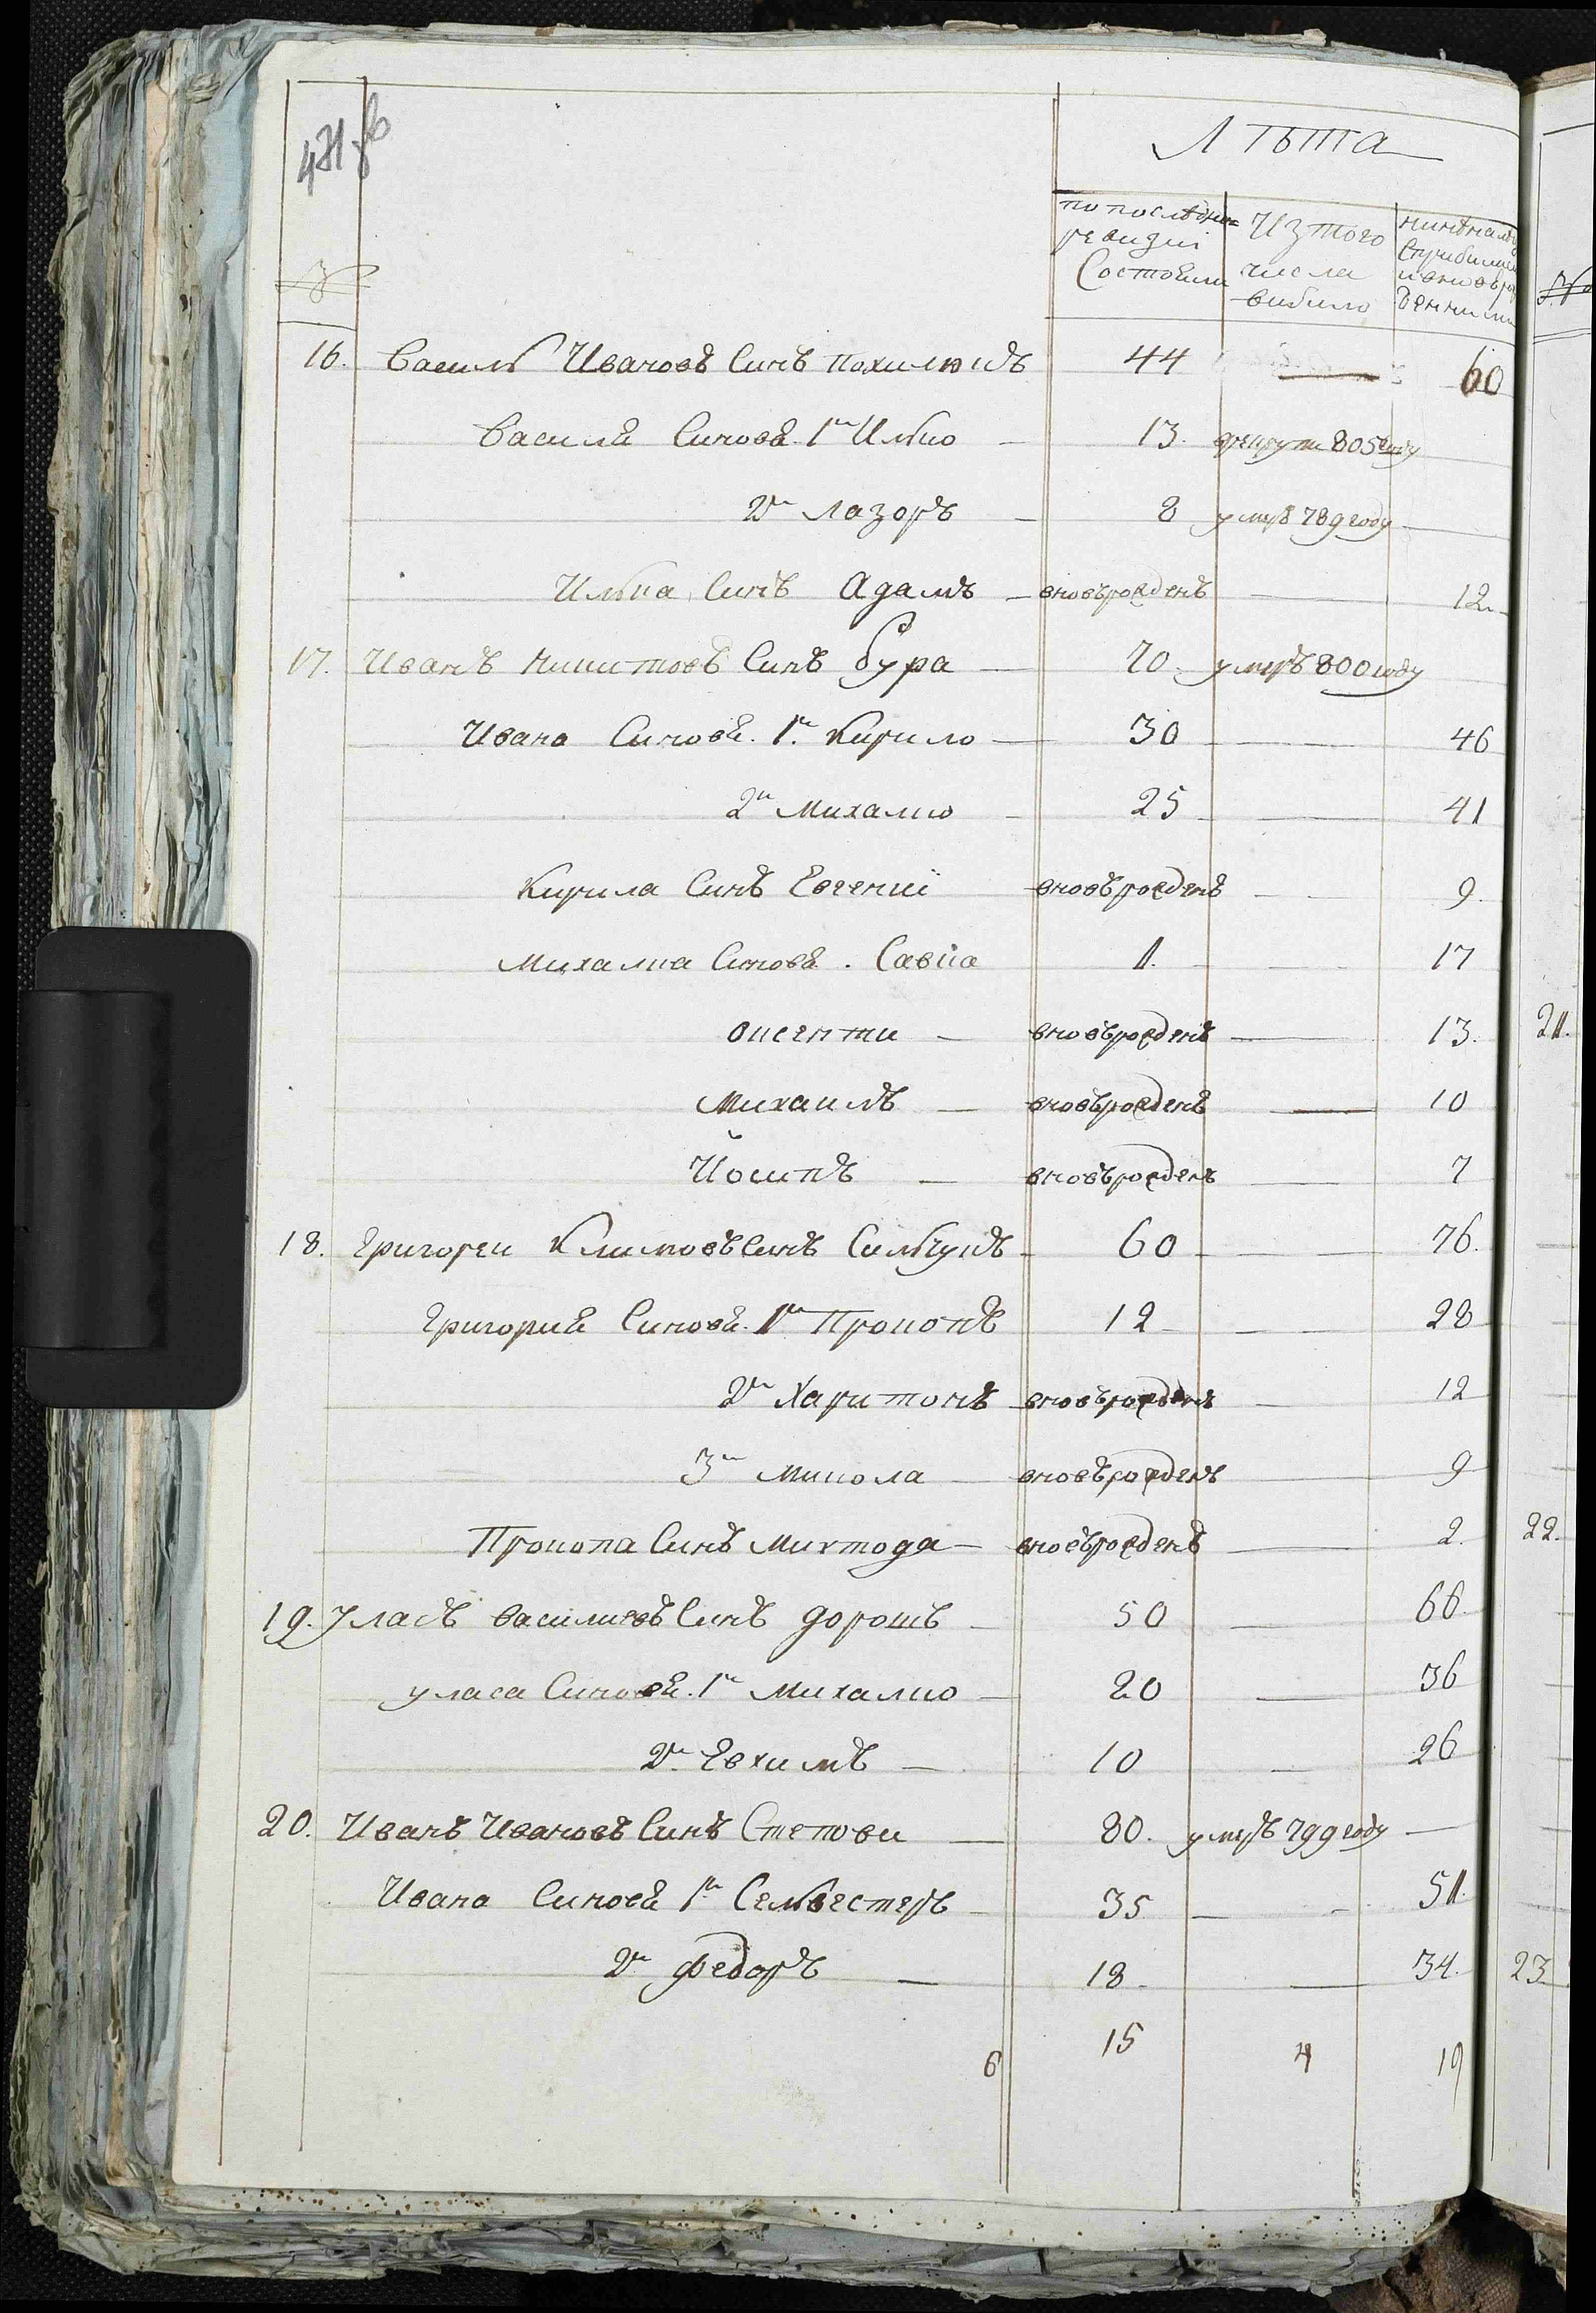 471 об
Лѣта
№
по последне=
ревизиі
Состояли
Из того
числа
вибило
16. Василь Ивановъ Синъ Похилюкъ 44 — 60
Василя Синовя 1й Илко — 13. рекрути 805 году
2й Лазоръ — 8 умеръ 789 году —
Илка Синъ Адамъ — вновърожденъ — 12.
17. Иванъ Синъ бура — 70. умеръ 800 году
Ивана Синовя. 1й Кирило — 30 — 46
2й Михалко — 25 — 41
Кирила Синъ Евгениї вновърожденъ — 9.
Михалка Синовя. Савка 1. — 17
Оксенти — вновърожденъ — 13.
Михаилъ — вновърожденъ — 10
Йосипъ — вновърожденъ — 7
18. Григореи Климовъ Синъ — 60 — 76.
Григория Синовя. 1й Прокопъ 12 — 28
2й Харитонъ вновърожденъ — 12
3й Микола — вновърожденъ — 9
Прокопа Синъ — вновърожденъ — 2.
19. Уласъ Василиевъ Синъ Дорошъ — 50 — 66.
Уласа Синовя. 1й Михалко — 20 — 36
2й Евхимъ — 10 — 26
20. Иванъ Ивановъ Синъ Степови — 80. умеръ 799 году —
Ивана Синовя 1й Селвестеръ — 35 — 51.
2й Федоръ — 18 — 34.
6 15 4 19
21.
22.
23